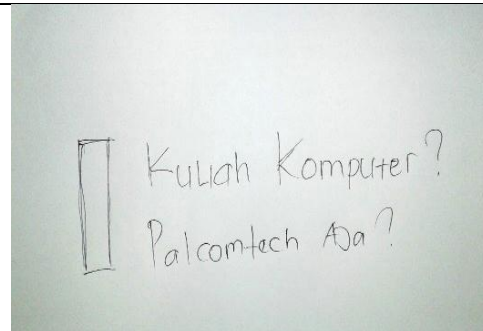 Kuliah Komputer?
Palcomtech Aja?